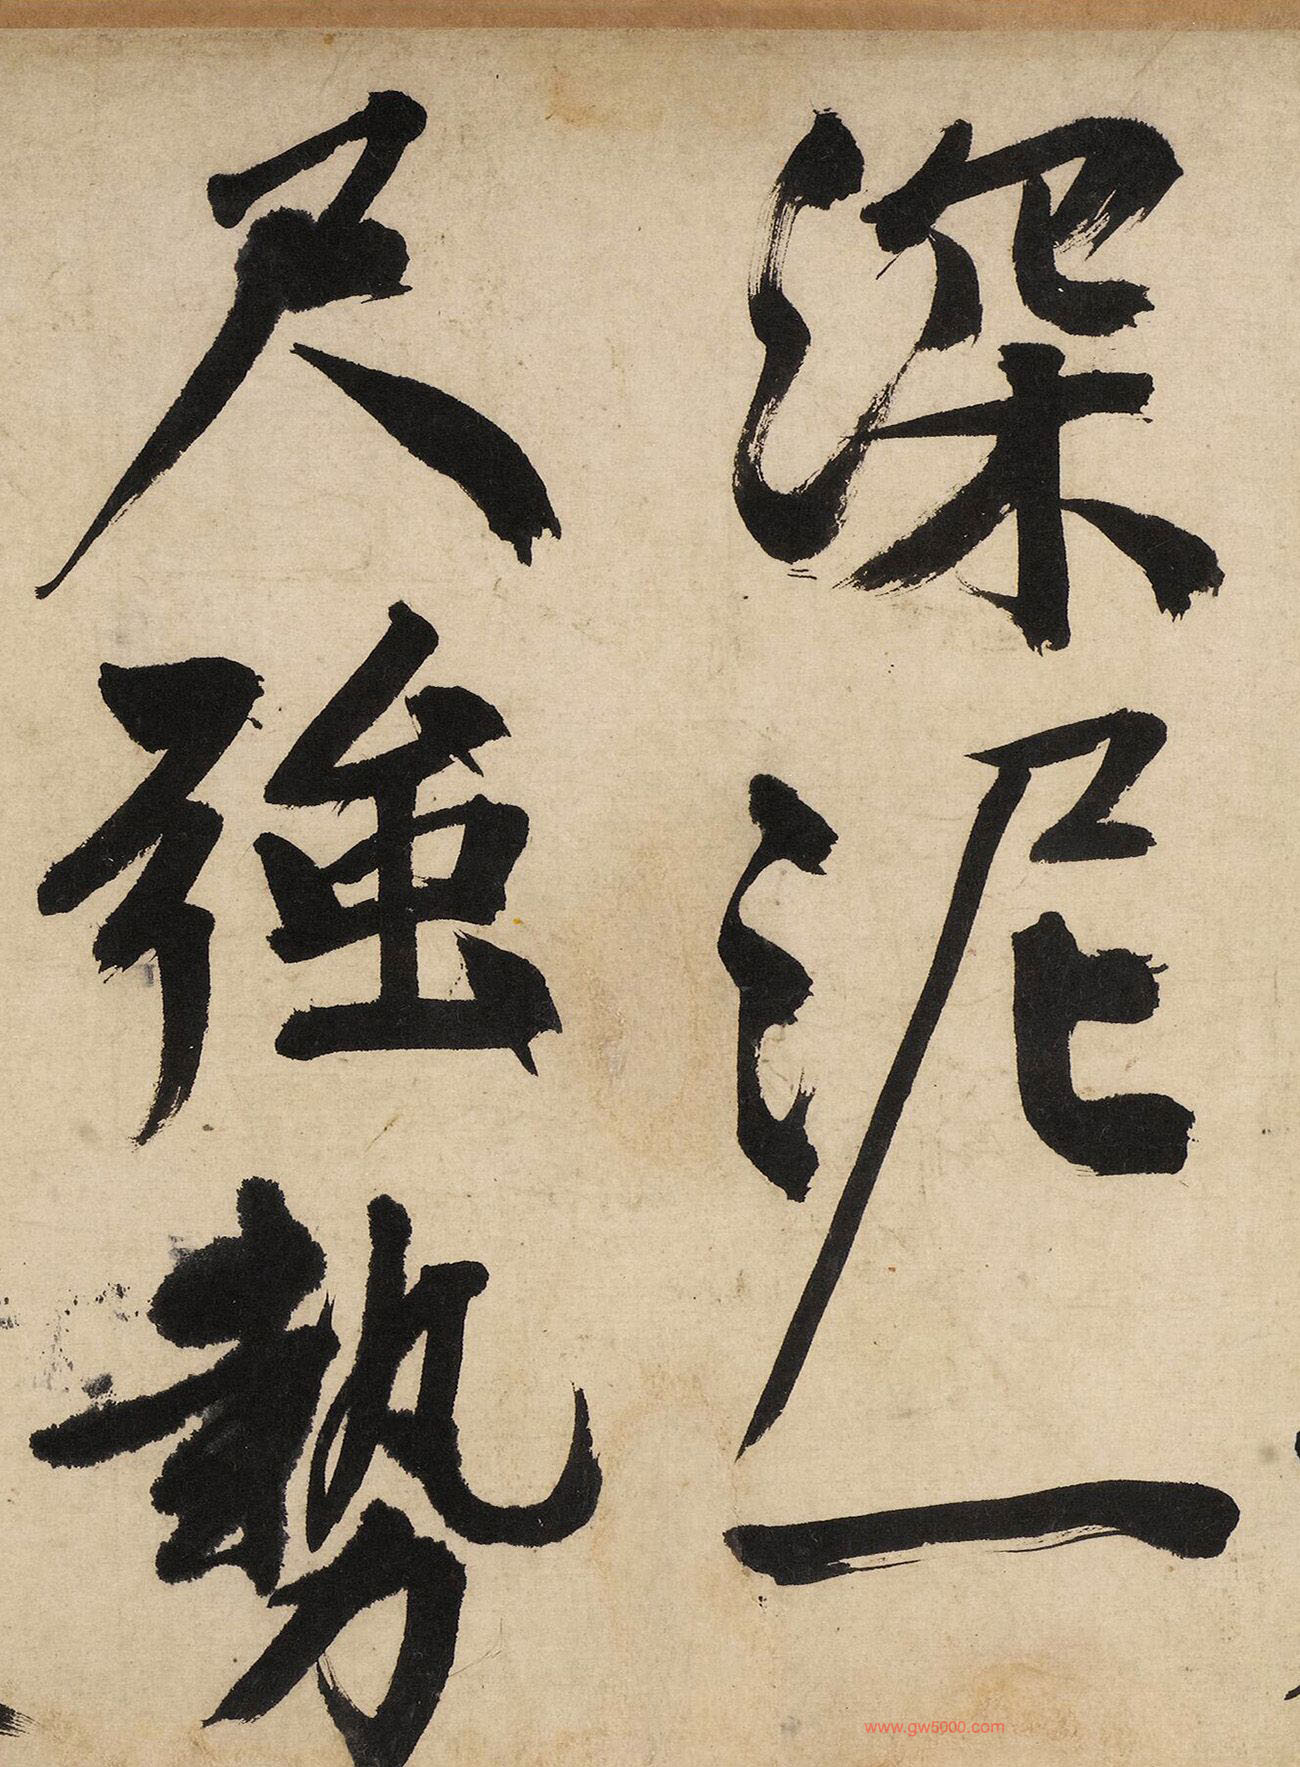 深泥一
尺強勢
www.gw5000.com